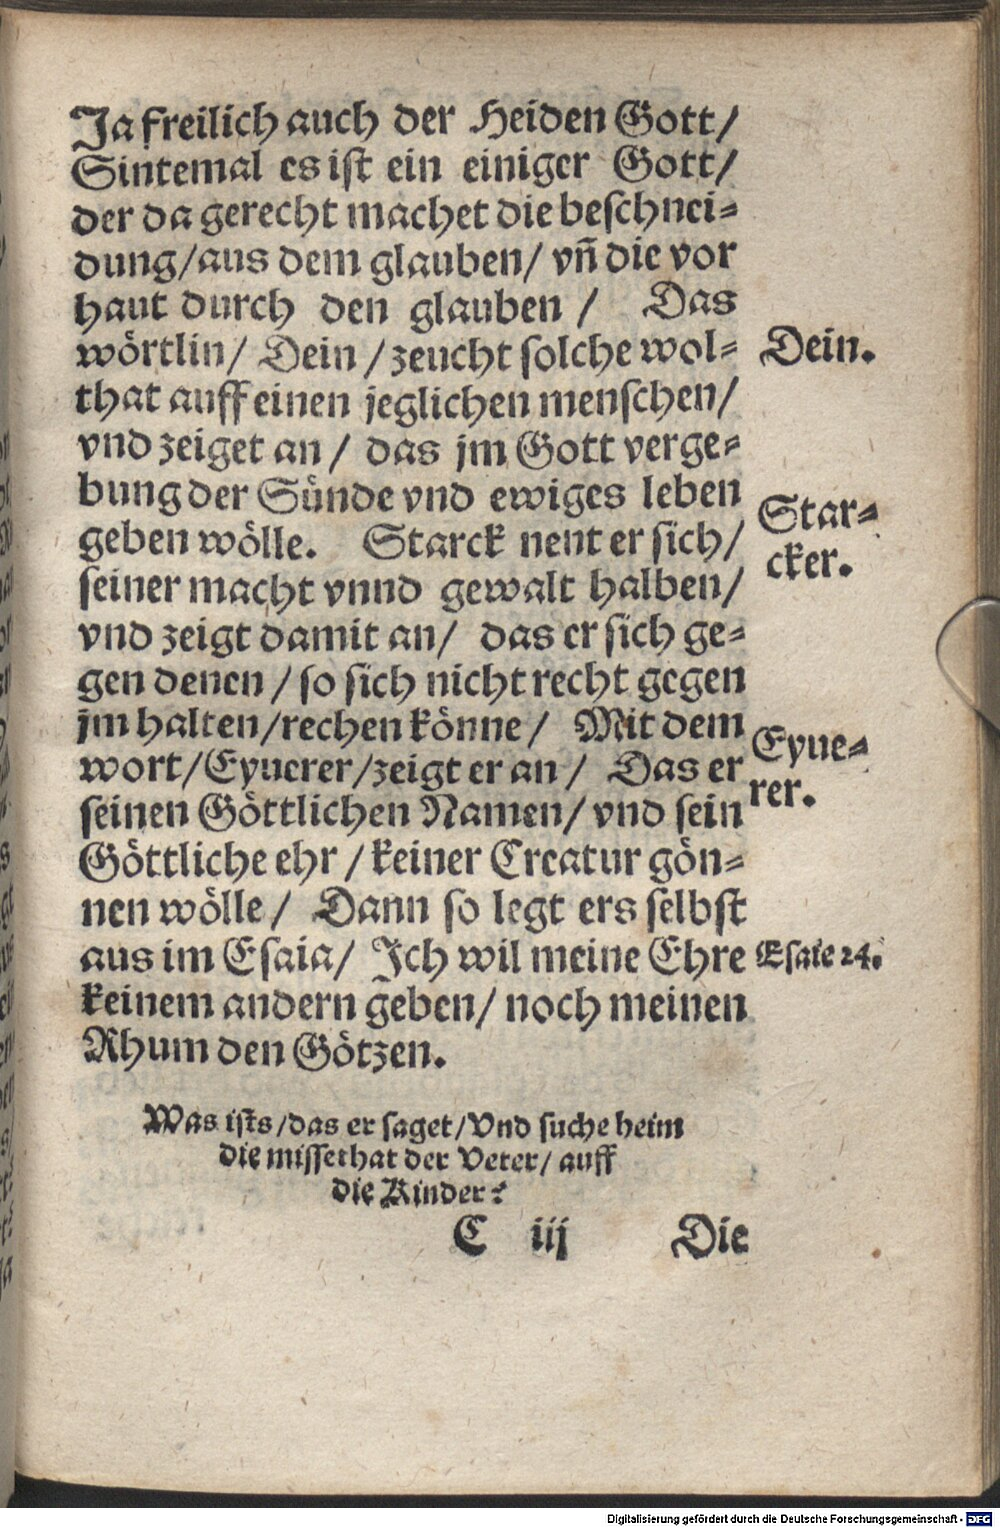 Ja freilich auch der Heiden Gott/
Sintemal es ist ein einiger Gott/
der da gerecht machet die beschnei⸗
dung/aus dem glauben/ vñ die vor
haut durch den glauben / Das
wörtlin/ Dein / zeucht solche wol⸗
Dein.
that auff einen jeglichen menschen/
vnd zeiget an / das jm Gott verge⸗
bung der Sünde vnd ewiges leben
geben wölle. Starck nent er sich/
Star⸗
cker.
seiner macht vnnd gewalt halben/
vnd zeigt damit an/ das er sich ge⸗
gen denen / so sich nicht recht gegen
jm halten/rechen könne / Mit dem
wort/Eyuerer/zeigt er an / Das er
Eyue⸗
rer.
seinen Göttlichen Namen/ vnd sein
Göttliche ehr / keiner Creatur gön⸗
nen wölle / Dann so legt ers selbst
aus im Esaia/ Ich wil meine Ehre
Esaie 24.
keinem andern geben/ noch meinen
Rhum den Götzen.
Was ists/das er saget/Vnd suche heim
die missethat der Veter/ auff
die Kinder?
C iij Die
Digitalisierung gefördert durch die Deutsche Forschungsgemeinschaft - DFG